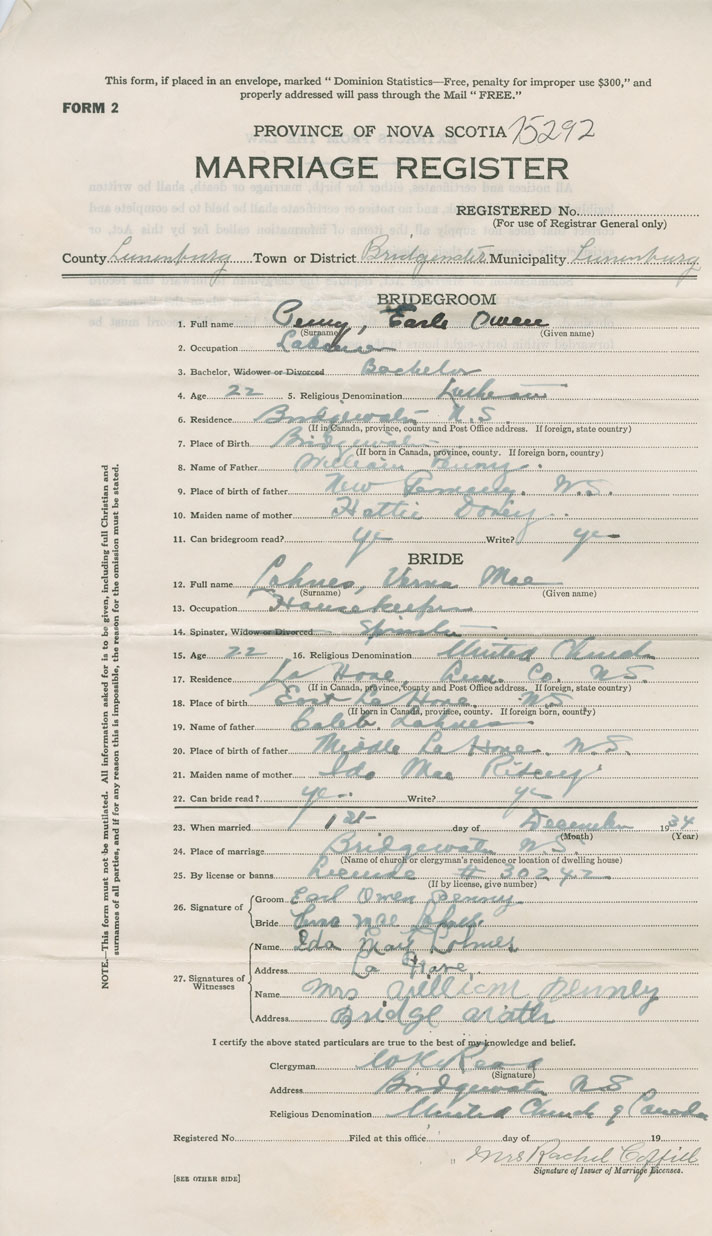 This form, if placed in an envelope, marked " Dominion Statistics—Free, penalty for improper use $300," and
properly addressed will pass through the Mail " FREE."
FORM 2
PROVINCE OF NOVA SCOTIA 75292
MARRIAGE REGISTER
REGISTERED No.
(For use of Registrar General only)
County Lunenburg Town or District Bridgewater Municipality Lunenburg
BRIDEGROOM
1. Full name Penny, Earle Owen
(Surname) (Given name)
2. Occupation Labourer
3. Bachelor, Widower or Divorced Bachelor
4. Age 22 5. Religious Denomination Lutheran
6. Residence Bridgewater N.S.
(If in Canada, province, county and Post Office address. If foreign, state country)
7. Place of Birth Bridgewater
(If born in Canada, province, county. If foreign born, country)
8. Name of Father William Penny
9. Place of birth of father New Germany, N.S.
10. Maiden name of mother Hattie Dorey
11. Can bridegroom read? yes Write? yes
BRIDE
12. Full name Lohnes, Verna Mae
(Surname) (Given name)
13. Occupation Housekeeper
14. Spinster, Widow or Divorced Spinster
15. Age 22 16. Religious Denomination United Church
17. Residence La Have, Lun. Co. N.S.
(If in Canada, province, county and Post Office address. If foreign, state country)
18. Place of birth East La Have, N.S.
(If born in Canada, province, county. If foreign born, country)
19. Name of father Caleb Lohnes
20. Place of birth of father Middle La Have, N.S.
21. Maiden name of mother Ida Mae Ritcey
22. Can bride read? yes Write? yes
23. When married 1st day of December 1934
(Month) (Year)
24. Place of marriage Bridgewater N.S.
(Name of church or clergyman's residence or location of dwelling house)
25. By license or banns License # 30242
(If by license, give number)
26. Signature of Groom Earl Owen Penny
Bride Mae
27. Signatures of Witnesses Name Ida Mary Lohnes
Address La Have,
Name Mrs William Penney
Address Bridge water
I certify the above stated particulars are true to the best of my knowledge and belief.
Clergyman Read
(Signature)
Address Bridgewater N.S
Religious Denomination United Church of Canada
Registered No. Filed at this office day of 19
Mrs Rachel Coffill
Signature of Issuer of Marriage Licenses.
[SEE OTHER SIDE]
NOTE.—This form must not be mutilated. All information asked for is to be given, including full Christian and
surnames of all parties, and if for any reason this is impossible, the reason for the omission must be stated.